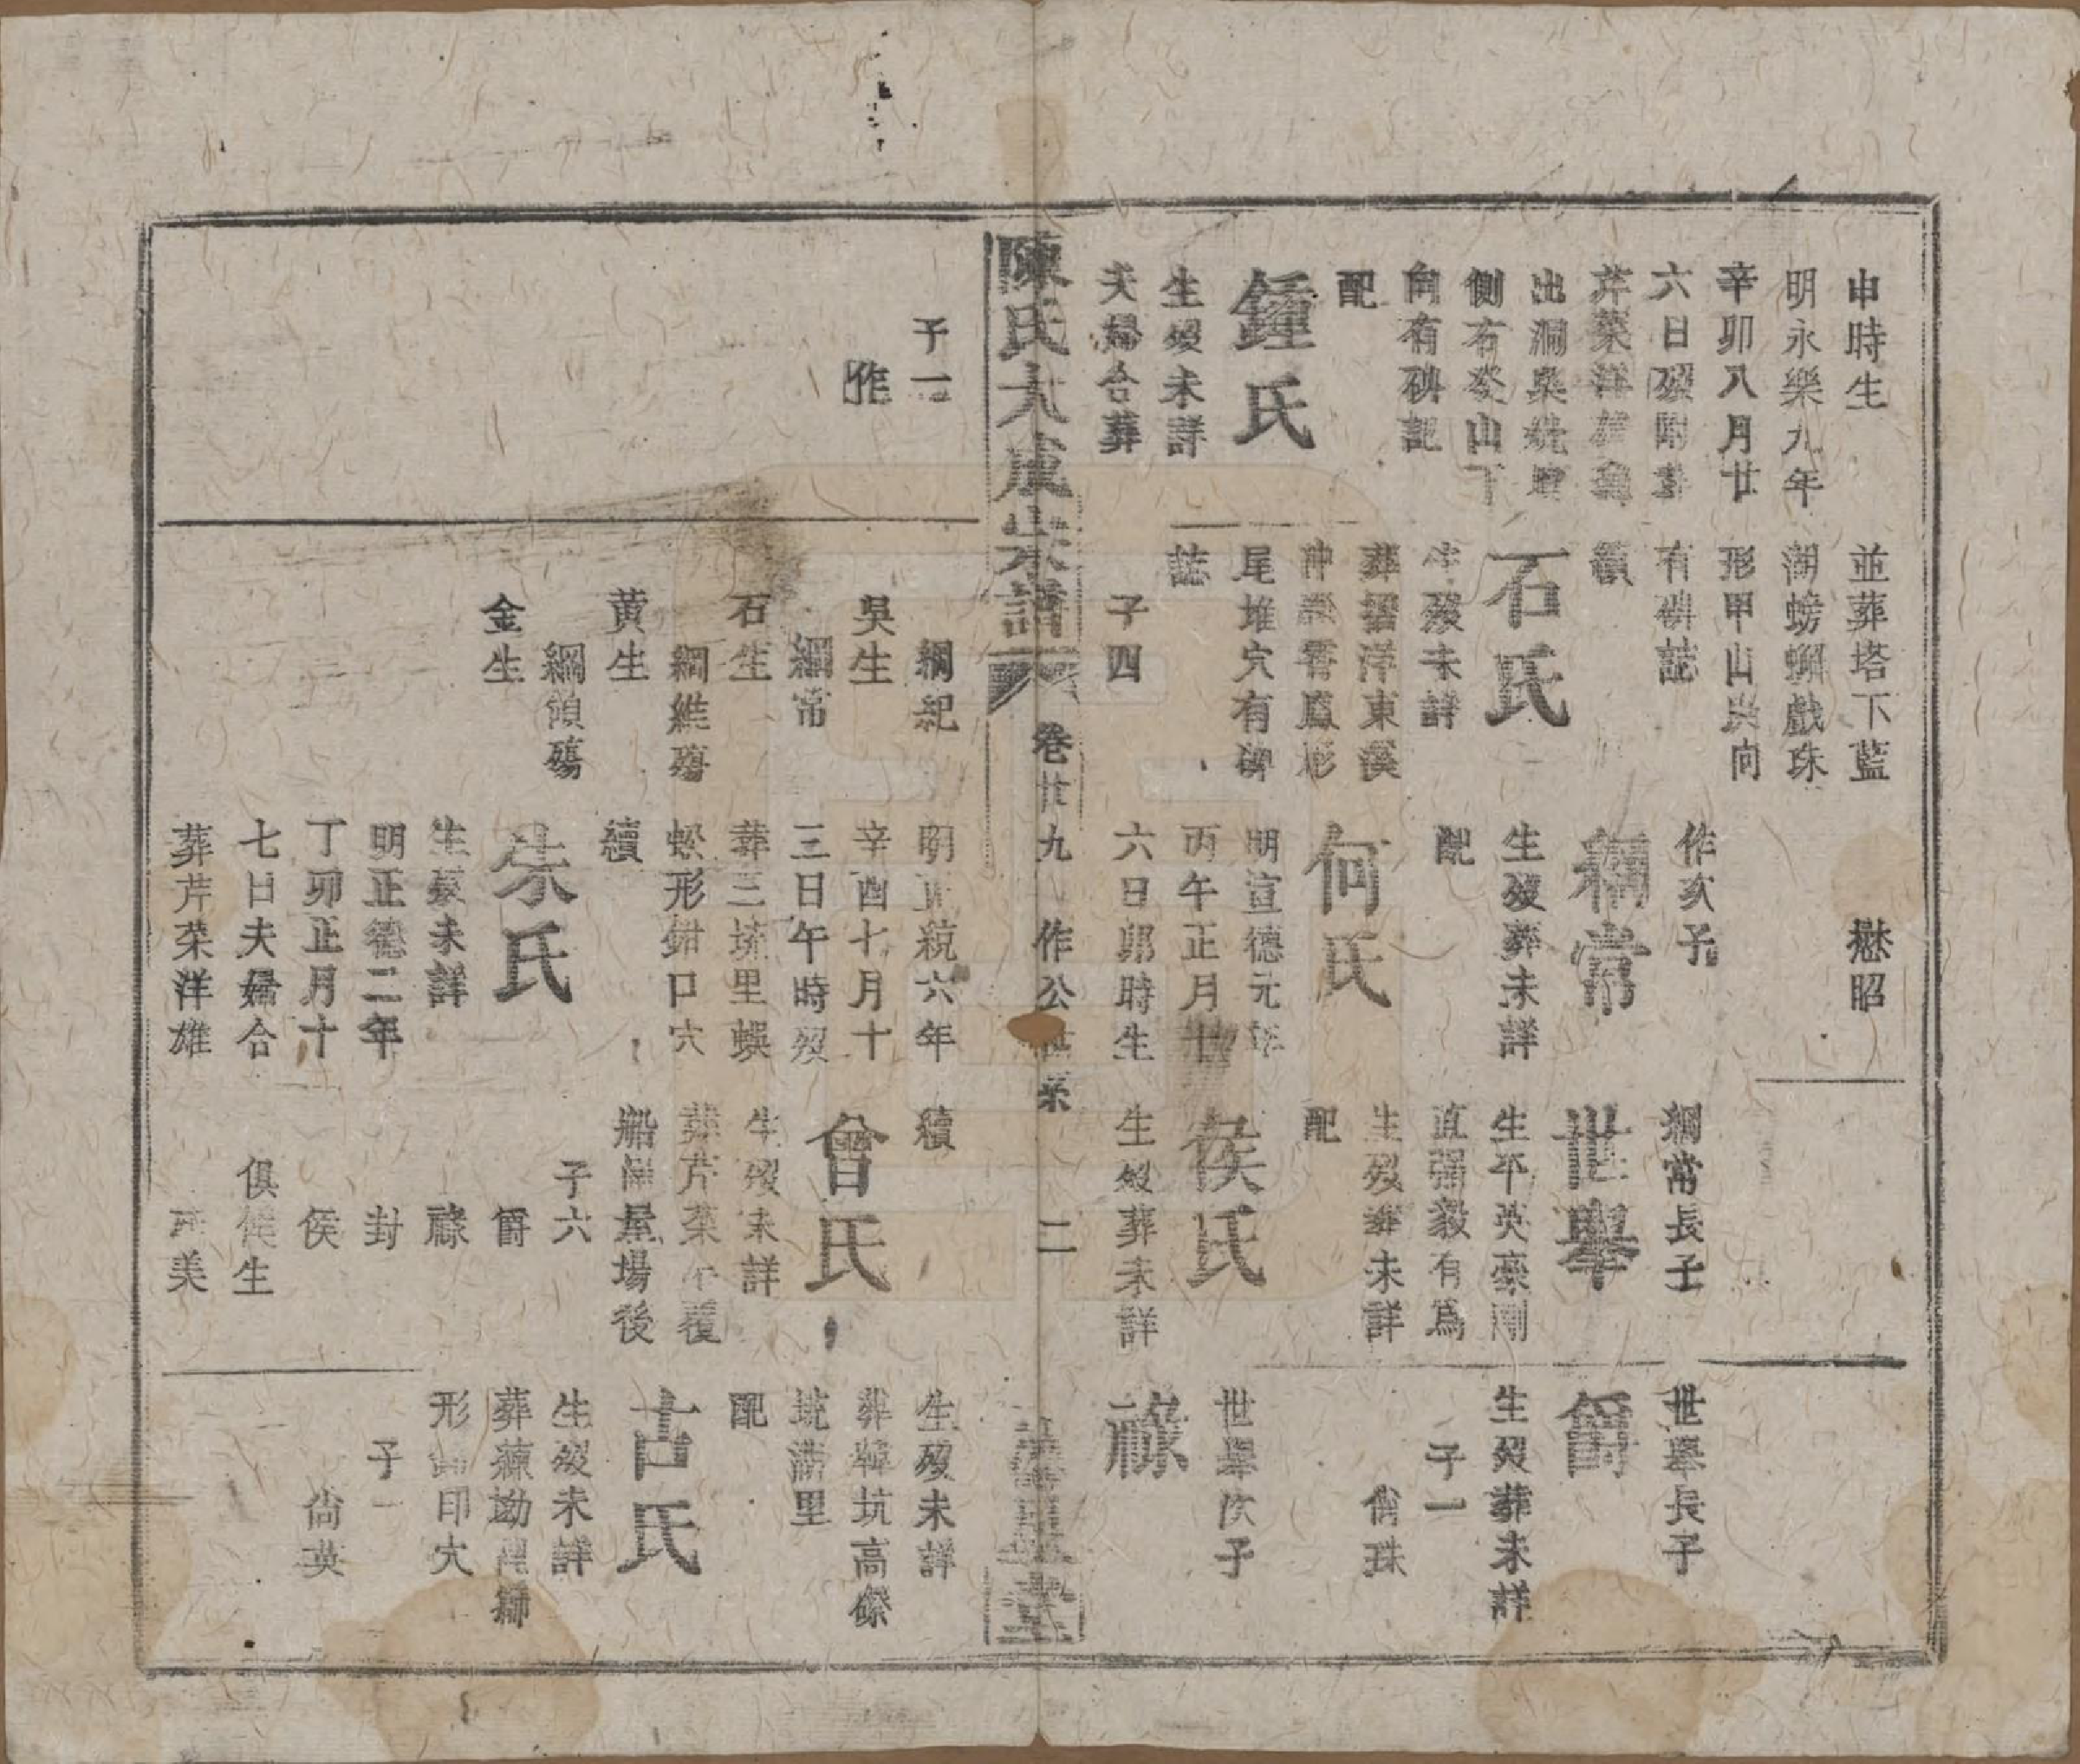 申時生
明永樂九年
辛卯八月廿
六日歿附葬
芹菜洋
出洞
側右癸山丁
向有碑記
配
鍾氏
生歿未詳
夫婦合葬
並葬塔下藍
湖螃蟹戲珠
形甲山庚向
有碑誌
續
石氏
生歿未詳
葬 洋東溪
鳳形
尾堆穴有碑
誌
子四
懋昭
作亥子
綱常
生歿葬未詳
配
何氏
明宣德元年
丙午正月十
六日卯時生
綱常長子
世舉
生平英豪剛
直強毅有為
生歿葬未詳
配
侯氏
生歿葬未詳
世舉長子
爵
生歿葬未詳
子一
尙珠
世舉次子
祿
陳氏大成宗譜
卷廿九 作公世系 二
星聚堂
子一
作
綱紀
吳生
綱常
石生
綱維殤
黃生
綱領殤
金生
明正統六年
辛酉七月十
三日午時歿
葬三坑里蜈
蚣形鉗口穴
續
朱氏
生歿未詳
明正德二年
丁卯正月十
七日夫婦合
葬芹菜洋雄
續
曾氏
生歿未詳
葬芹菜 覆
船 屋場後
子六
爵
祿
封
侯
俱侯生
美
生歿未詳
葬 坑高磜
坑 里
配
古氏
生歿未詳
葬 坳 獅
形 印穴
子一
尙英